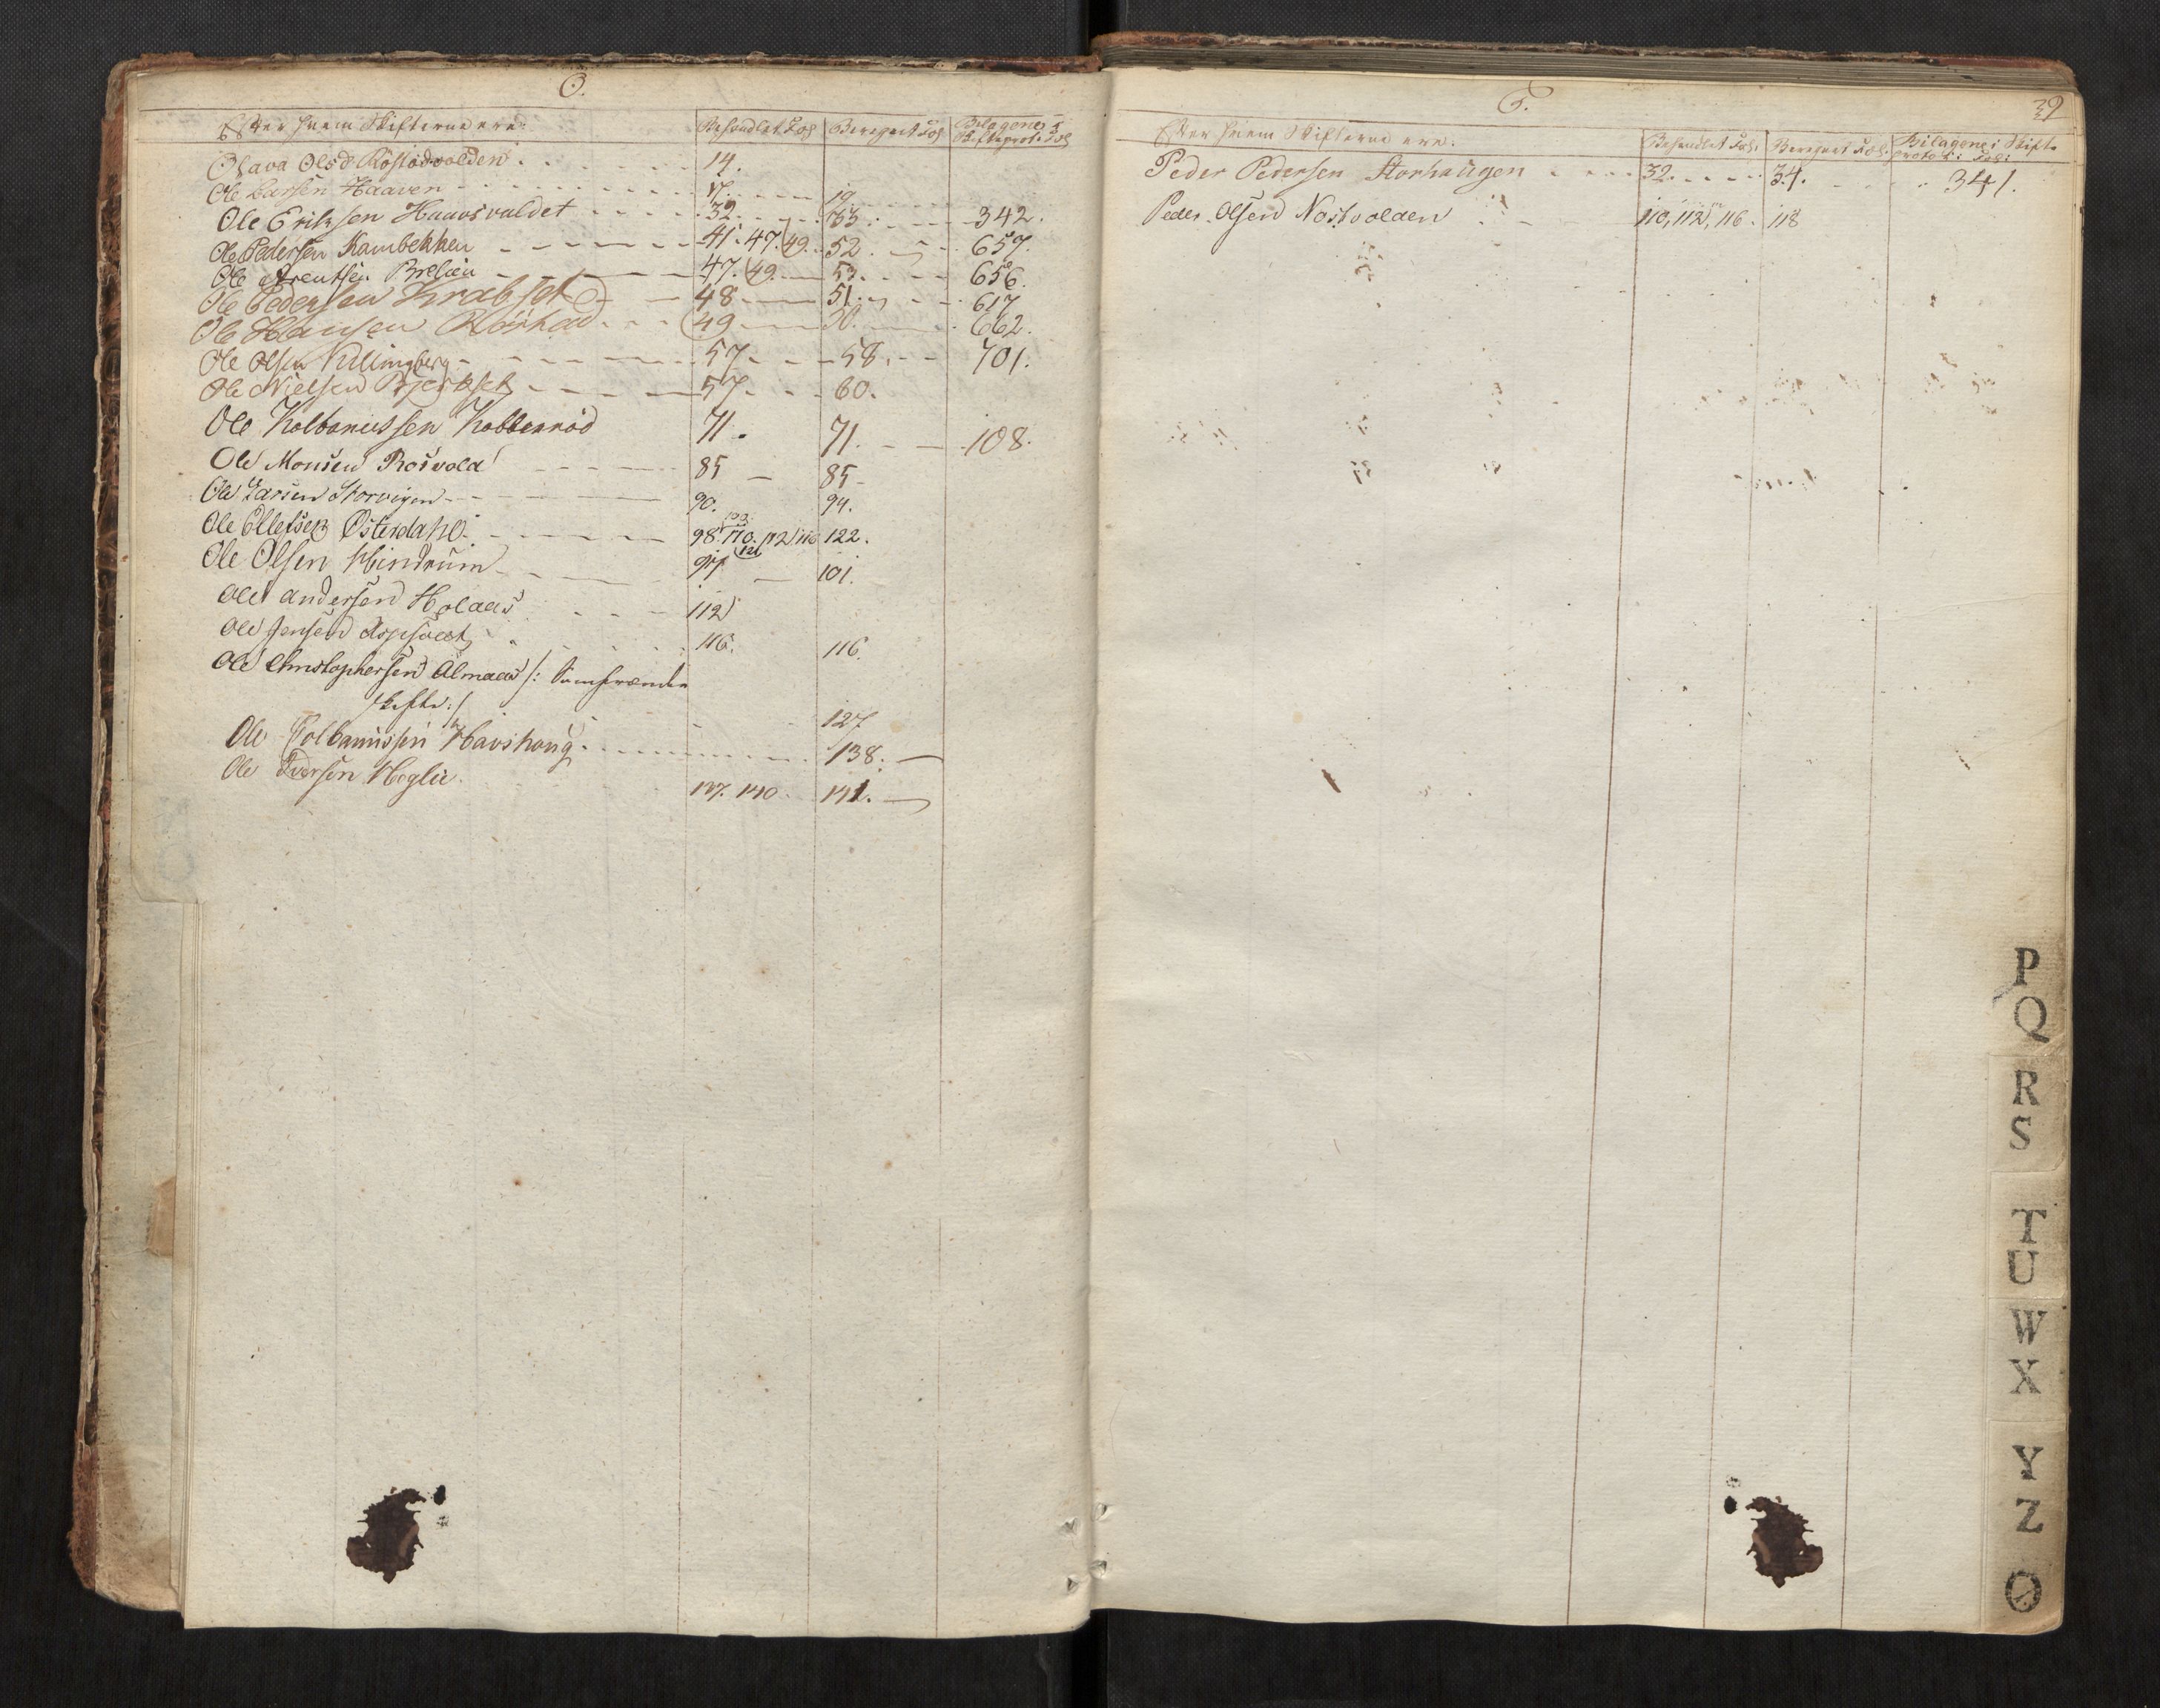 O.
Efter hvem Skifterne ere: Behandlet Fol Beregnet Fol Bilagene i Skifteprot: Fol
Olava Olsd. Røstadvolden 14.
Ole Larsen Haaven 17. 19
Ole Eriksen Haavsvaldet 32. 33. 342.
Ole Pedersen Kambekken 41. 47. 49. 52. 657.
Ole Arentsen 47. 49. 53. 656.
Ole Pedersen Krabset 48 51. 617
Ole Hansen 49 50. 662.
Ole Olsen Killingberg 57. 58. 701.
Ole Nielsen 57. 60.
Ole Kolbanussen 71. 71. 108.
Ole Monsen Rosvold 85 85
Ole Larsen Storvigen 90. 94.
Ole Ellefsen Østerdahl 98. 110. 112. 116 122.
Ole Olsen Hindrum 101.
Ole Andersen Holaas 112
Ole Jensen 116. 116.
Ole Christophersen Almaas /:
Skifte:/ 127
Ole Kolbanussen Havshoug 138.
Ole Iversen Heglie 137. 140 141.
P.
39
Efter hvem Skifterne ere: Behandlet Fol. Beregnet Fol. Bilagene i Skifte
protok: Fol:
Peder Pedersen Storhaugen 32. 34. 341.
Peder Olsen Nostvolden 110, 112, 116. 118
P
Q
R
S
T
U
W
X
Y
Z
Ø